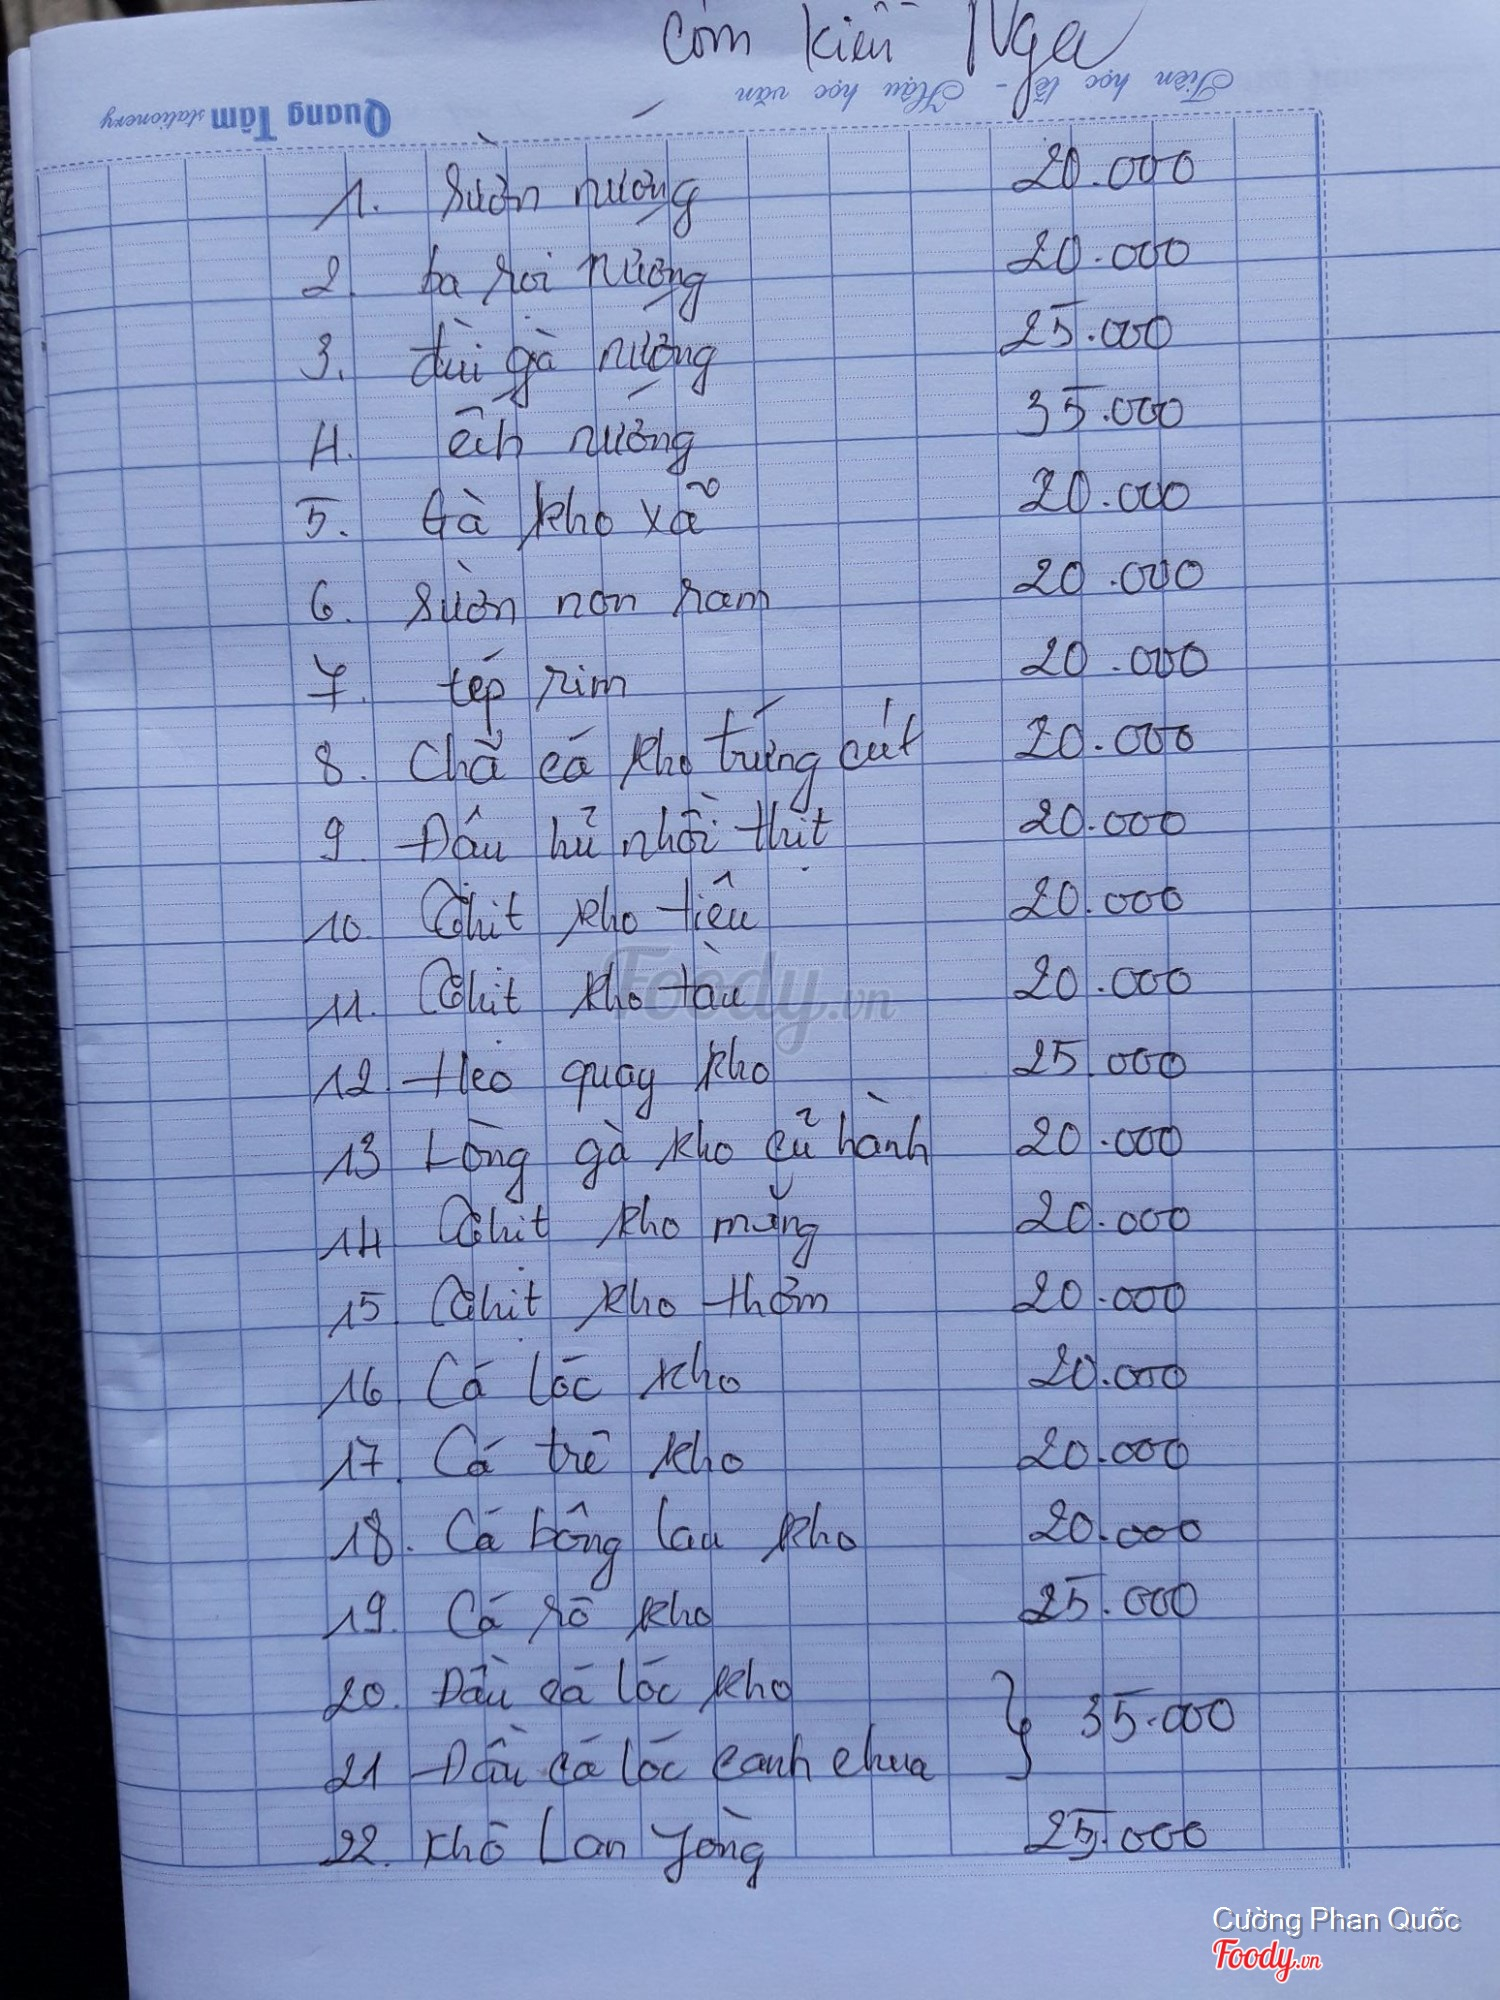 Cơm kiều Nga
Tiên học lễ - Hậu học văn
Quang Tâm stationery
1. Sườn nướng 20.000
2. ba rọi nướng 20.000
3. đùi gà nướng 25.000
4. ếch nướng 35.000
5. Gà kho xã 20.000
6. Sườn non ram 20.000
7. tép rim 20.000
8. Chã cá kho trứng cút 20.000
9. Đậu hủ nhồi thịt 20.000
10. Thịt kho tiêu 20.000
11. Thịt kho tàu 20.000
12. Heo quay kho 25.000
13 Lòng gà kho củ hành 20.000
14 Thịt kho măng 20.000
15. Thịt kho thơm 20.000
16. Cá lóc kho 20.000
17. Cá trê kho 20.000
18. Cá bông lau kho 20.000
19. Cá rô kho 25.000
20. Đầu cá lóc kho
35.000
21 Đầu cá lóc canh chua
22. Khô Lan 25.000
Foody.vn
Cường Phan Quốc
Foody.vn